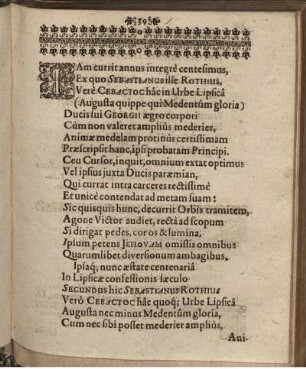 IAm currit annus integrè centesimus,
Ex quo SEBASTIANUS ille ROTHIUS,
Verè CEBACTOC hâc in Urbe Lipsicâ
(Augusta quippe qui Medentûm gloria)
Ducis sui GEORGII ægro corpori
Cùm non valeret ampliùs mederier,
Animæ medelam protinùs certissimam
Præscripsit hanc, ipsi probatam Principi.
Ceu Cursor, inquit, omnium extat optimus
Vel ipsius juxta Ducis paræmian,
Qui currat intra carceres rectissimè
Et unicè contendat ad metam suam:
Sic quisquis hunc, decurrit Orbis tramitem,
Agone Victor audiet, rectà ad scopum
Si dirigat pedes, cor os & lumina,
Ipsum petens JEHOVAM omissis omnibus
Quarumlibet diversionum ambagibus.
Ipsaq; nunc ætate centenariâ
In Lipsicæ confessionis sæculo
SECUNDUS hic SEBASTIANUS ROTHIUS
Verò CEBACTOC hâc quoq; Urbe Lipsicâ
Augusta nec minus Medentûm gloria,
Cum nec sibi posset mederier ampliùs,
Ani-